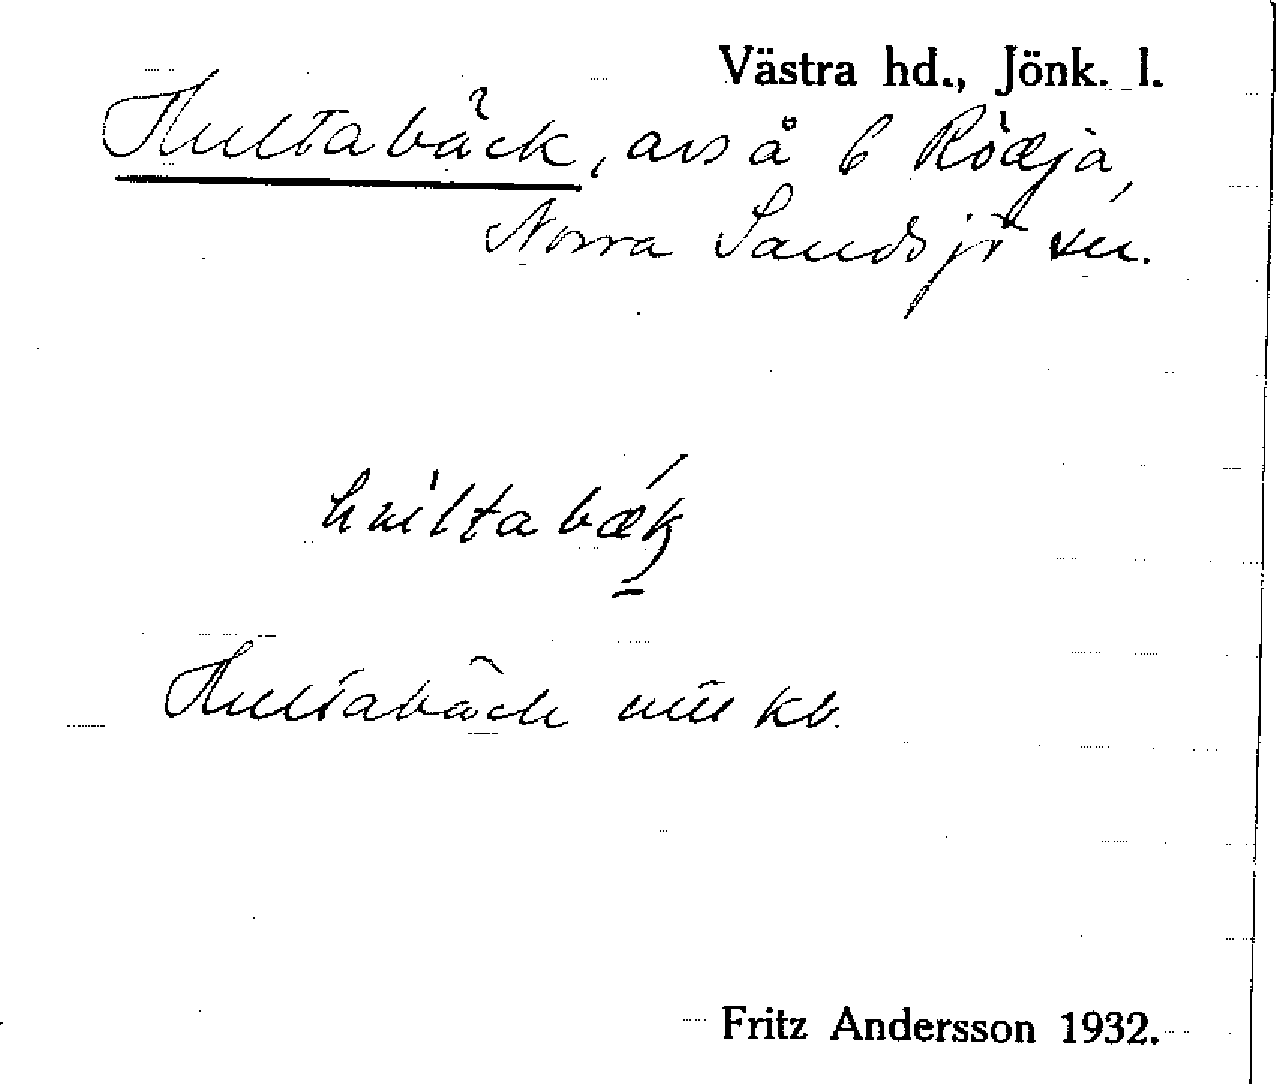 Västra hd., Jönk. l.
Hultabäck, avs å 6 Rödja,
Norra Sandsjö sn.
hultabæk
Hultabäck kb.
Fritz Andersson 1932.